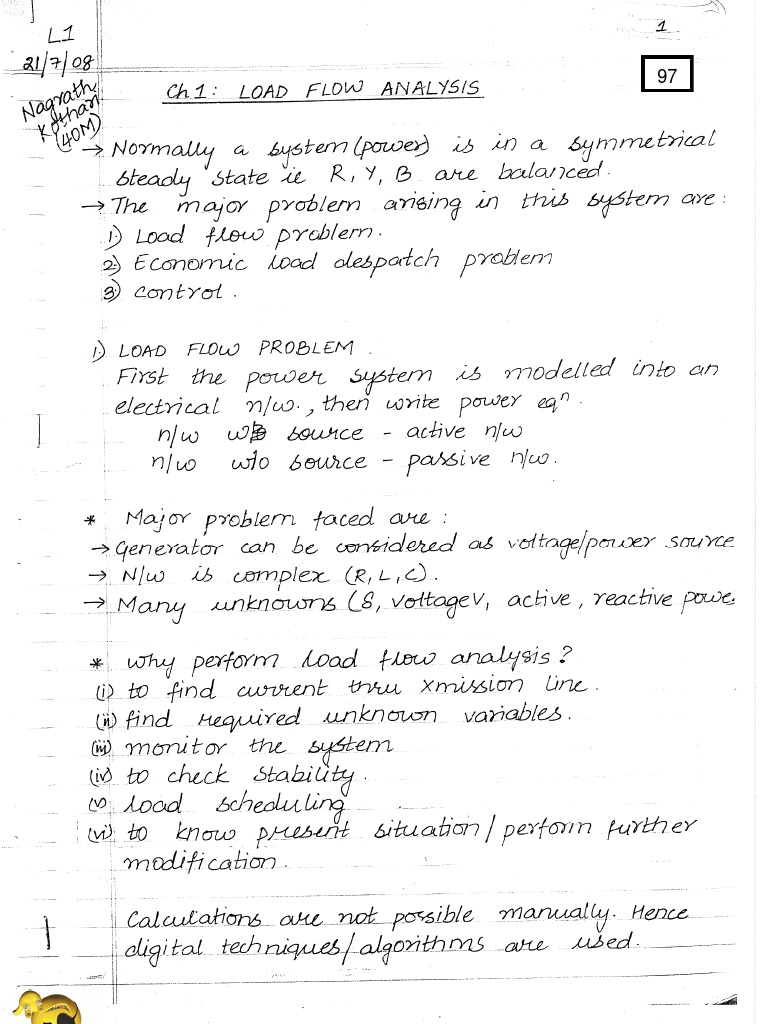 L1
1
21/7/08
97
Nagrath
Kothari
(40M)
Ch 1: LOAD FLOW ANALYSIS
→ Normally a system (power) is in a symmetrical
steady state ie R, Y, B are balanced.
→ The major problem arising in this system are:
1) Load flow problem.
2) Economic load despatch problem
3) control.
1) LOAD FLOW PROBLEM.
First the power system is modelled into an
electrical n/w., then write power eqⁿ.
n/w w source - active n/w
n/w w/o source - passive n/w.
* Major problem faced are:
→ Generator can be considered as voltage/power source
→ N/w is complex (R, L, C).
→ Many unknowns (δ, voltage V, active, reactive powe
* why perform load flow analysis?
(i) to find current thru xmission line.
(ii) find required unknown variables.
(iii) monitor the system
(iv) to check stability.
(v) load scheduling
(vi) to know present situation / perform further
modification.
Calculations are not possible manually. Hence
digital techniques/algorithms are used.